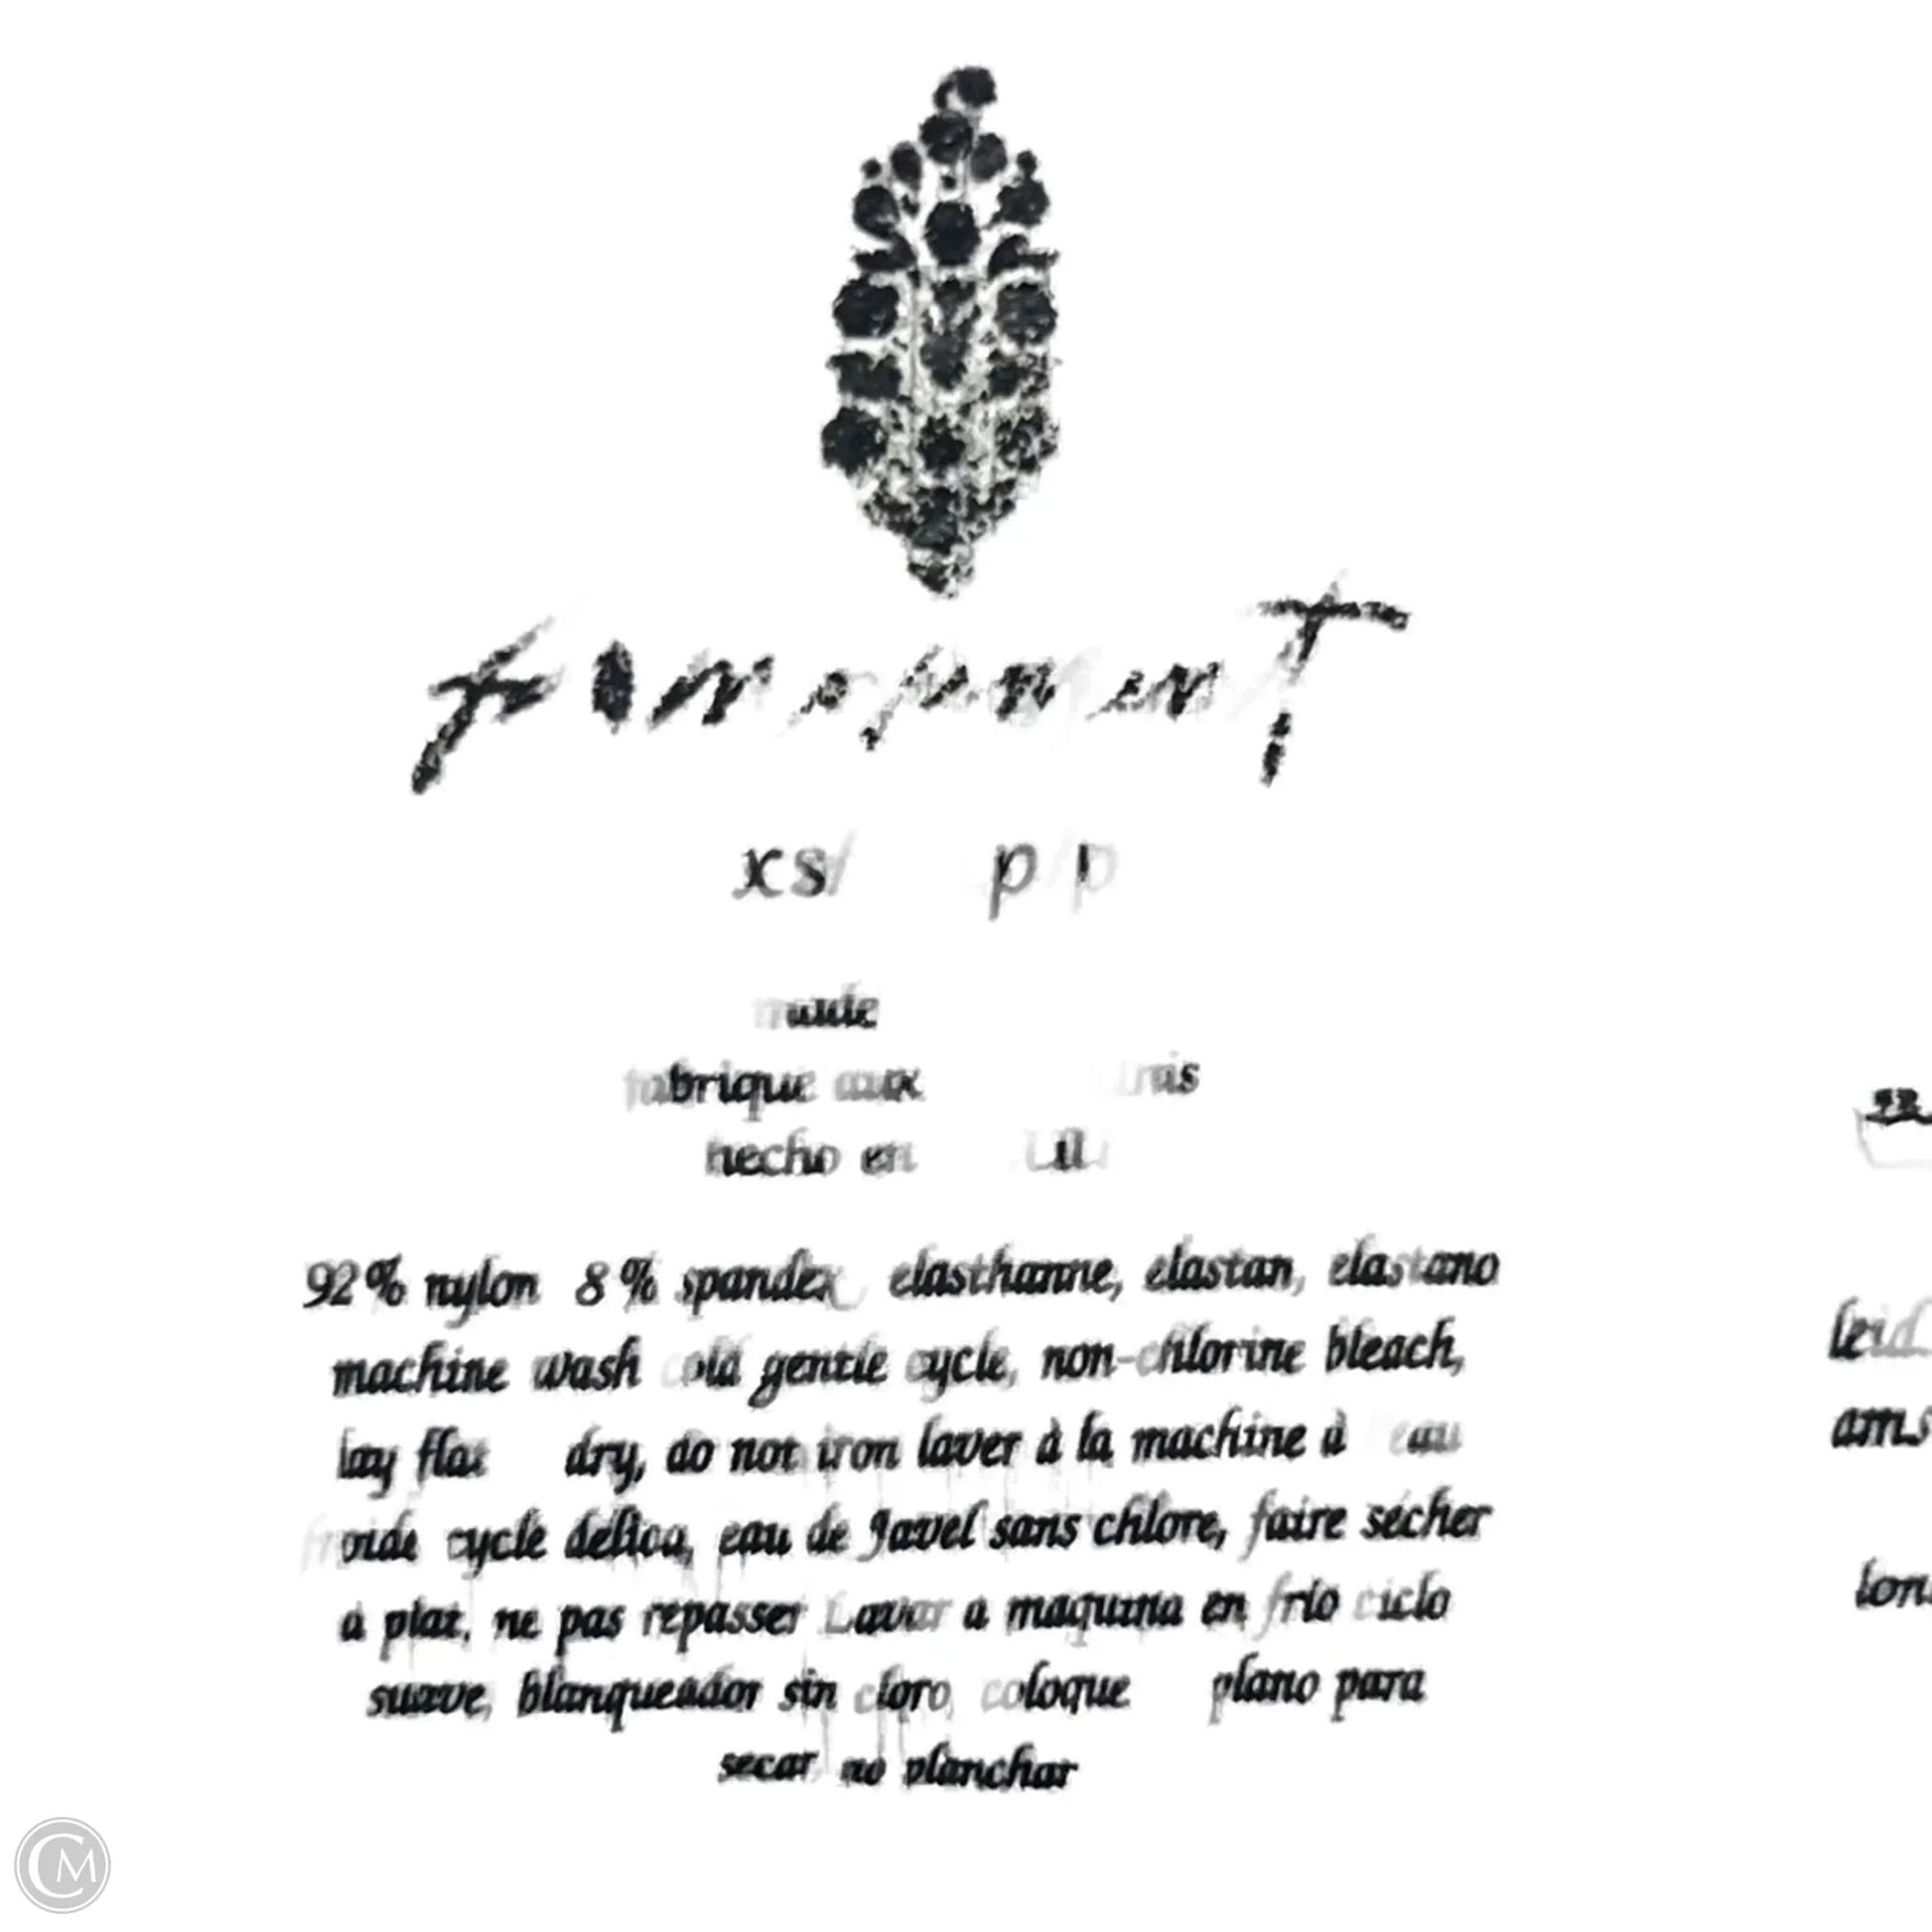 xs/ p/p
made
fabrique aux
hecho en
92% nylon 8% spandex elasthanne, elastan, elastano
machine wash cold gentle cycle, non-chlorine bleach,
lay flat dry, do not iron laver à la machine à l'eau
froide cycle délica, eau de Javel sans chlore, faire sécher
a plat, ne pas repasser Lavar a maquina en frío ciclo
suave, blanqueador sin cloro, coloque plano para
secar, no planchar
CM